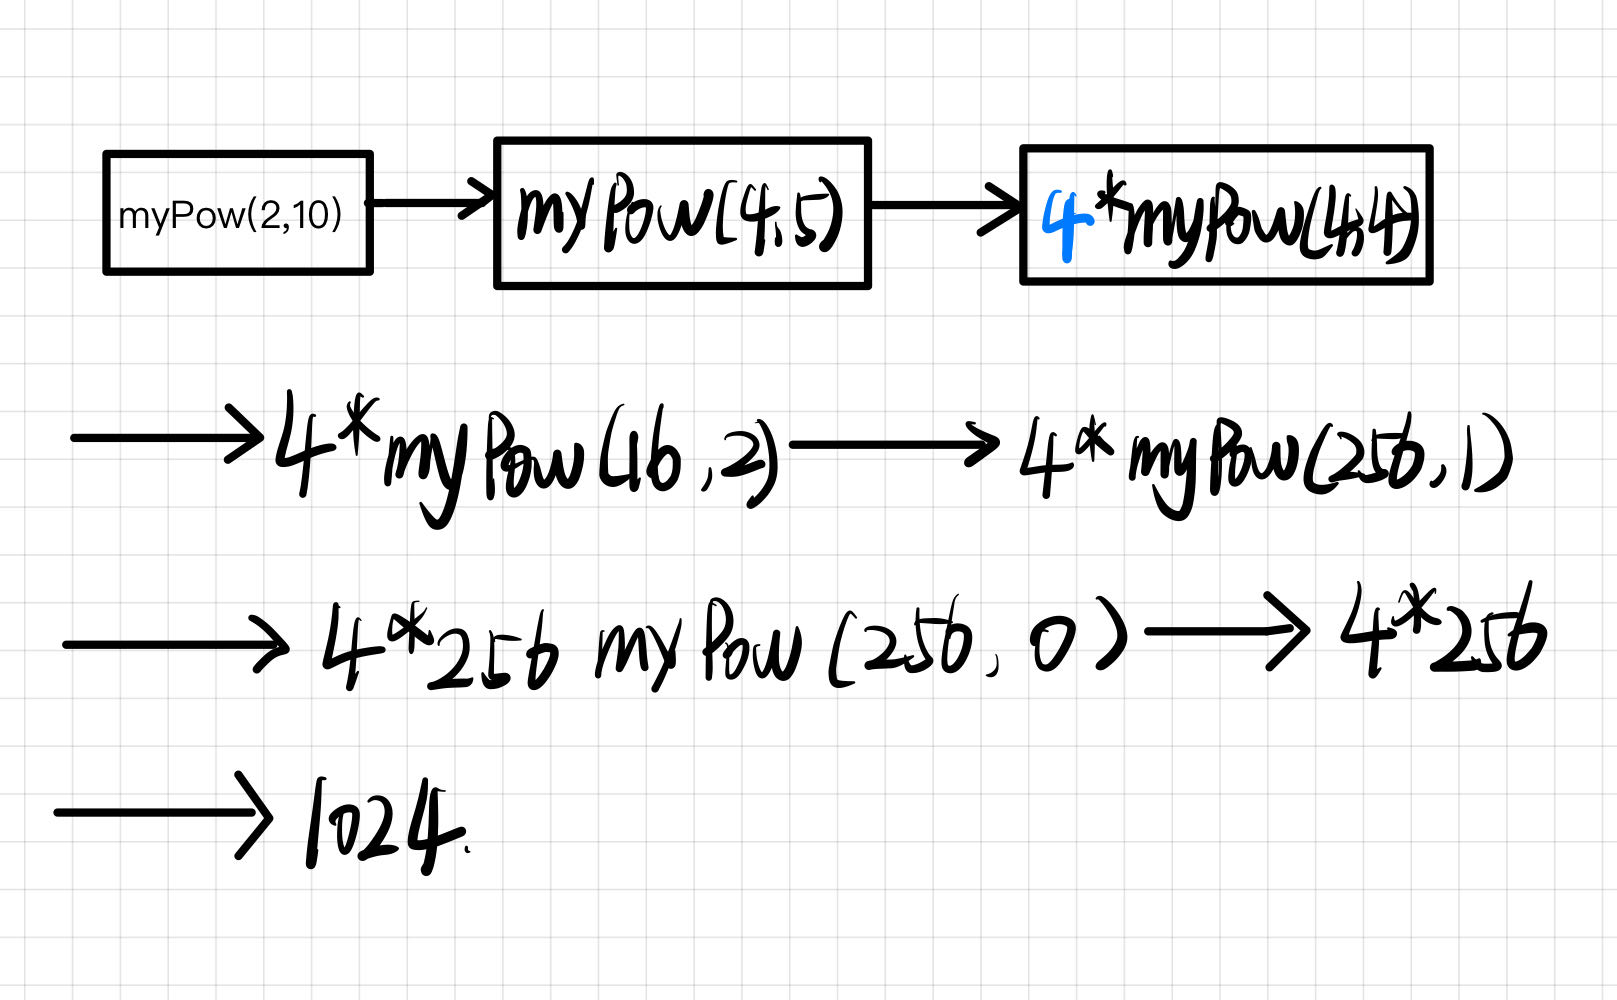 myPow(2,10) → myPow(4,5) → 4*myPow(4,4)
→ 4*myPow(16,2) → 4*myPow(256,1)
→ 4*256 myPow(256,0) → 4*256
→ 1024.